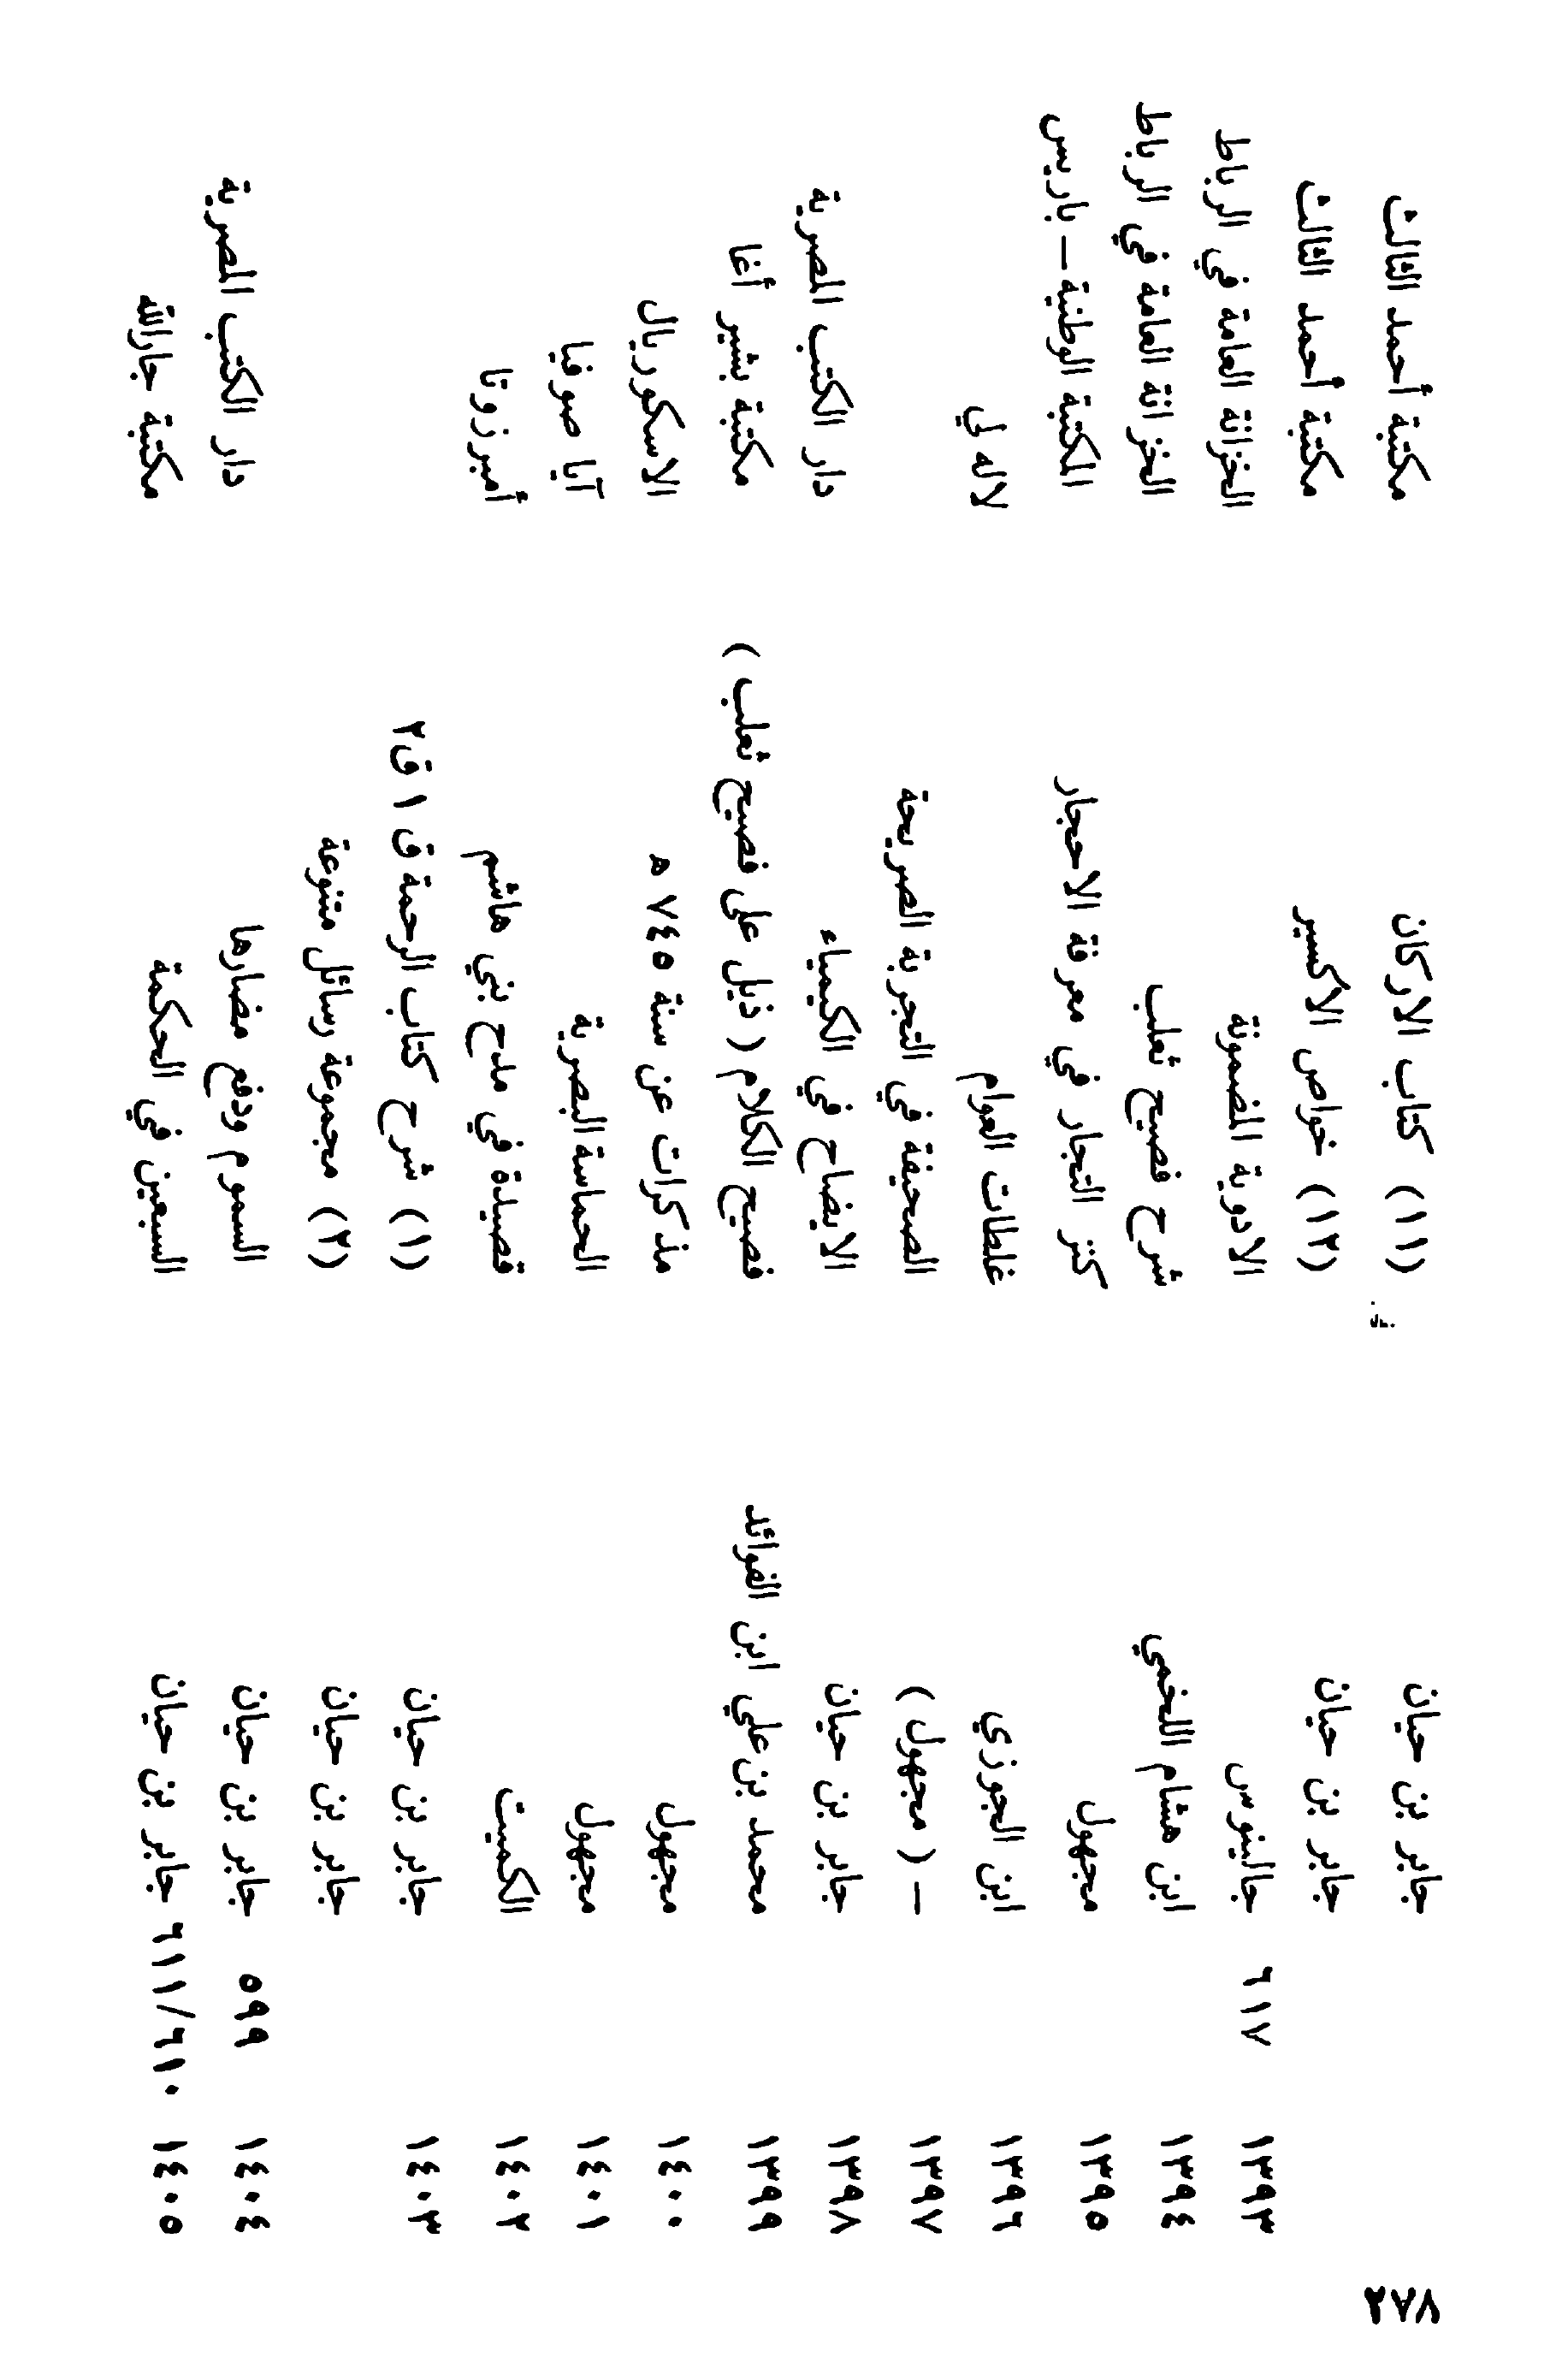 ٢٧٨
جابر بن حيان (١١) كتاب الاركان مكتبة أحمد الثالث
جابر بن حيان (١٢) خواص الأكسير مكتبة أحمد الثالث
١٣٩٣ ٦١٧ جالينوس الادوية المضمونة الخزانة العامة في الرباط
١٣٩٤ ابن هشام اللخمي شرح فصيح ثعلب الخزانة العامة في الرباط
١٣٩٥ مجهول كنز التجار في معرفة الاحجار المكتبة الوطنية – باريس
١٣٩٦ ابن الجوزي غلطات العوام لاله لي
١٣٩٧ – ( مجهول ) الصحيفة في التجربة الصريحة
١٣٩٨ جابر بن حيان الايضاح في الكيمياء دار الكتب المصرية
١٣٩٩ محمد بن علي ابن الفوائد فصيح الكلام ( ذيل على فصيح ثعلب ) مكتبة بشير أغا
١٤٠٠ مجهول مذكرات عن سنة ٧٤٥ ه الاسكوريال
١٤٠١ مجهول الحماسة البصرية آيا صوفيا
١٤٠٢ الكميت قصيدة في مدح بني هاشم أمبرزوتا
١٤٠٣ جابر بن حيان (١) شرح كتاب الرحمة ق ١ ق ٢
جابر بن حيان (٢) مجموعة رسائل متنوعة
١٤٠٤ ٥٩٩ جابر بن حيان السموم ودفع مضارها دار الكتب المصرية
١٤٠٥ ٦١٠/٦١١ جابر بن حيان السبعين في الحكمة مكتبة جارالله